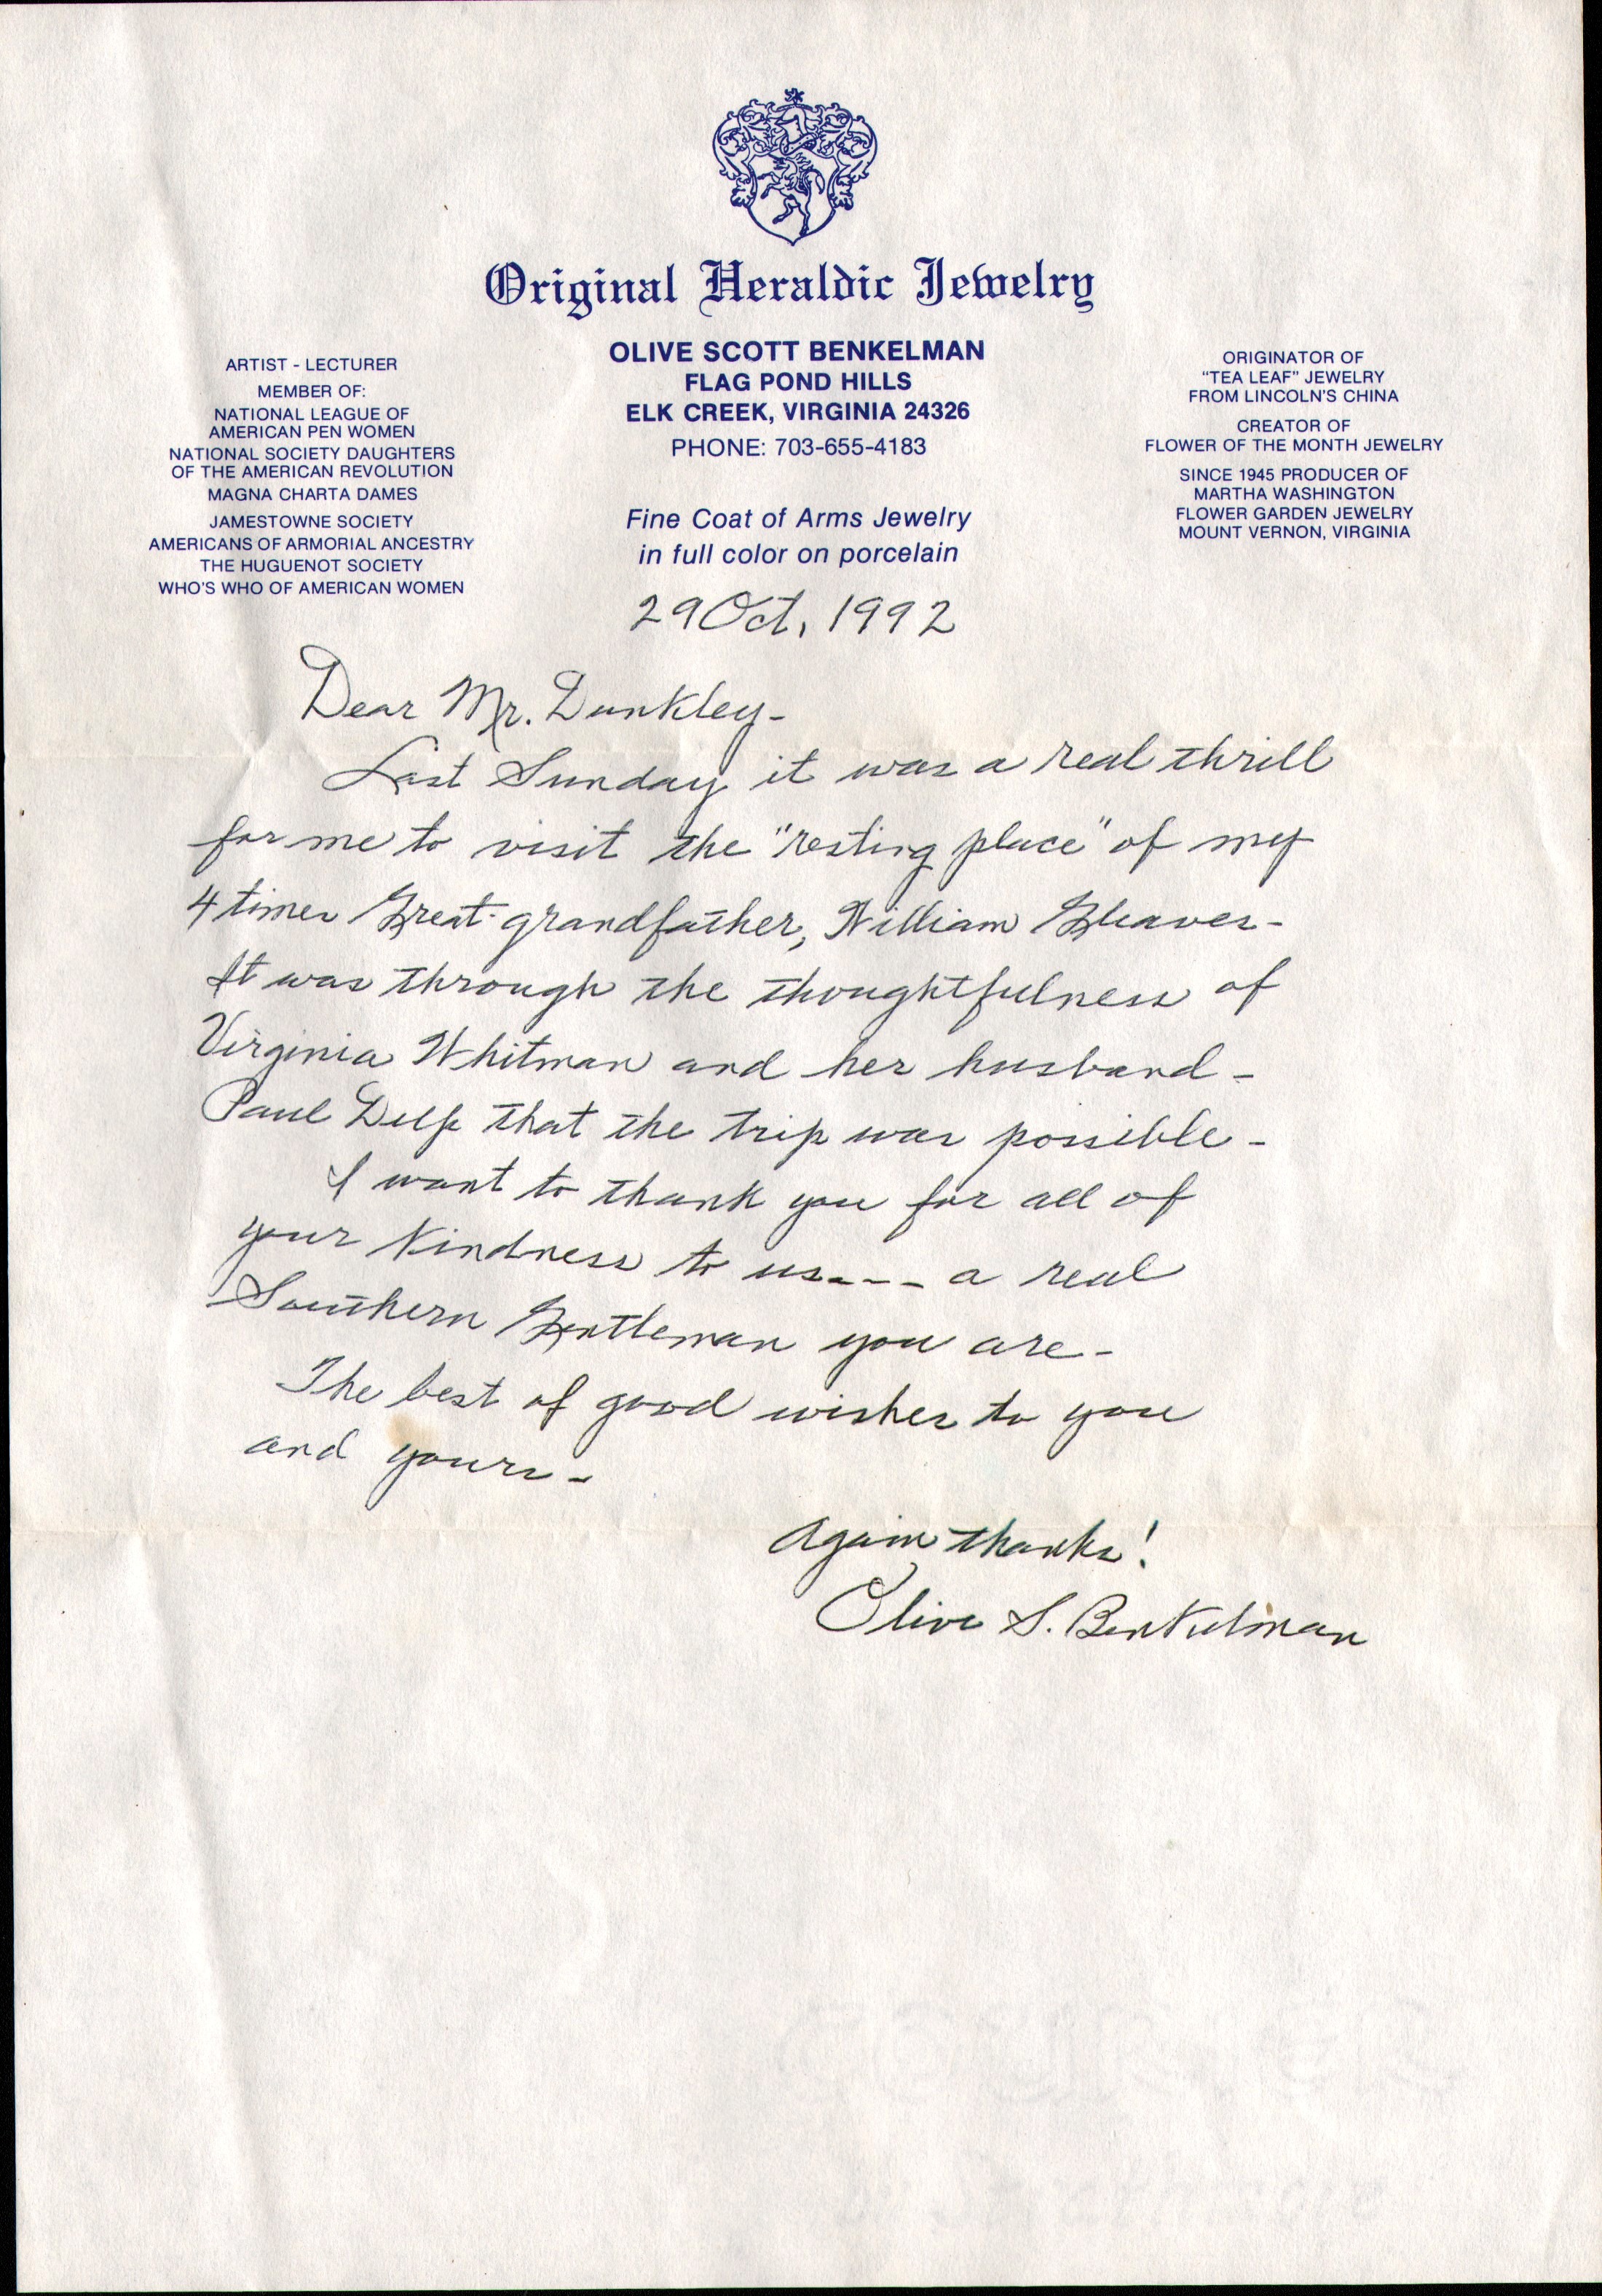 Original Heraldic Jewelry
OLIVE SCOTT BENKELMAN
FLAG POND HILLS
ELK CREEK, VIRGINIA 24326
PHONE: 703-655-4183
Fine Coat of Arms Jewelry
in full color on porcelain
ARTIST - LECTURER
MEMBER OF:
NATIONAL LEAGUE OF
AMERICAN PEN WOMEN
NATIONAL SOCIETY DAUGHTERS
OF THE AMERICAN REVOLUTION
MAGNA CHARTA DAMES
JAMESTOWNE SOCIETY
AMERICANS OF ARMORIAL ANCESTRY
THE HUGUENOT SOCIETY
WHO'S WHO OF AMERICAN WOMEN
ORIGINATOR OF
"TEA LEAF" JEWELRY
FROM LINCOLN'S CHINA
CREATOR OF
FLOWER OF THE MONTH JEWELRY
SINCE 1945 PRODUCER OF
MARTHA WASHINGTON
FLOWER GARDEN JEWELRY
MOUNT VERNON, VIRGINIA
29 Oct, 1992
Dear Mr. Dunkley-
Last Sunday it was a real thrill
for me to visit the "resting place" of my
4 times Great-grandfather, William Gleaves-
It was through the thoughtfulness of
Virginia Whitman and her husband-
Paul Delp that the trip was possible-
I want to thank you for all of
your kindness to us---- a real
Southern Gentleman you are-
The best of good wishes to you
and yours-
Again thanks!
Olive S. Benkelman